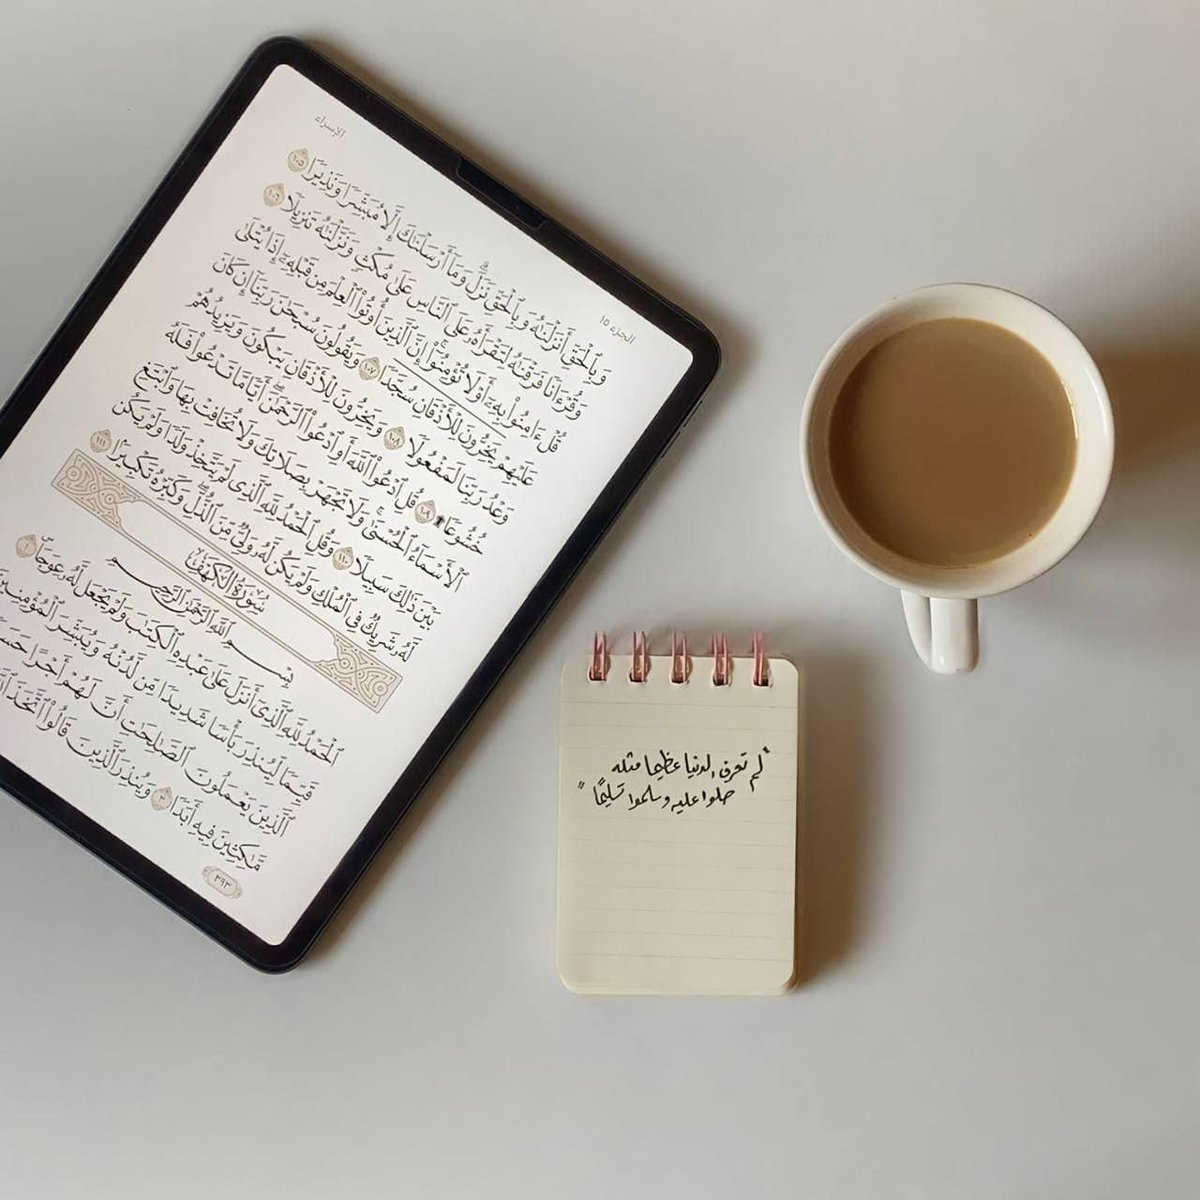 الإسراء
الجزء ١٥
وَبِٱلْحَقِّ أَنزَلْنَٰهُ وَبِٱلْحَقِّ نَزَلَ ۗ وَمَآ أَرْسَلْنَٰكَ إِلَّا مُبَشِّرًا وَنَذِيرًا ١٠٥
وَقُرْءَانًا فَرَقْنَٰهُ لِتَقْرَأَهُۥ عَلَى ٱلنَّاسِ عَلَىٰ مُكْثٍ وَنَزَّلْنَٰهُ تَنزِيلًا ١٠٦
قُلْ ءَامِنُوا۟ بِهِۦٓ أَوْ لَا تُؤْمِنُوٓا۟ ۚ إِنَّ ٱلَّذِينَ أُوتُوا۟ ٱلْعِلْمَ مِن قَبْلِهِۦٓ إِذَا يُتْلَىٰ
عَلَيْهِمْ يَخِرُّونَ لِلْأَذْقَانِ سُجَّدًا ١٠٧ وَيَقُولُونَ سُبْحَٰنَ رَبِّنَآ إِن كَانَ
وَعْدُ رَبِّنَا لَمَفْعُولًا ١٠٨ وَيَخِرُّونَ لِلْأَذْقَانِ يَبْكُونَ وَيَزِيدُهُمْ
خُشُوعًا ۩ ١٠٩ قُلِ ٱدْعُوا۟ ٱللَّهَ أَوِ ٱدْعُوا۟ ٱلرَّحْمَٰنَ ۖ أَيًّا مَّا تَدْعُوا۟ فَلَهُ
ٱلْأَسْمَآءُ ٱلْحُسْنَىٰ ۚ وَلَا تَجْهَرْ بِصَلَاتِكَ وَلَا تُخَافِتْ بِهَا وَٱبْتَغِ
بَيْنَ ذَٰلِكَ سَبِيلًا ١١٠ وَقُلِ ٱلْحَمْدُ لِلَّهِ ٱلَّذِى لَمْ يَتَّخِذْ وَلَدًا وَلَمْ يَكُن
لَّهُۥ شَرِيكٌ فِى ٱلْمُلْكِ وَلَمْ يَكُن لَّهُۥ وَلِىٌّ مِّنَ ٱلذُّلِّ ۖ وَكَبِّرْهُ تَكْبِيرًۢا ١١١
سُورَةُ الكَهْفِ
بِسْمِ ٱللَّهِ ٱلرَّحْمَٰنِ ٱلرَّحِيمِ
ٱلْحَمْدُ لِلَّهِ ٱلَّذِىٓ أَنزَلَ عَلَىٰ عَبْدِهِ ٱلْكِتَٰبَ وَلَمْ يَجْعَل لَّهُۥ عِوَجَاۜ ١
قَيِّمًا لِّيُنذِرَ بَأْسًا شَدِيدًا مِّن لَّدُنْهُ وَيُبَشِّرَ ٱلْمُؤْمِنِينَ
ٱلَّذِينَ يَعْمَلُونَ ٱلصَّٰلِحَٰتِ أَنَّ لَهُمْ أَجْرًا
مَّٰكِثِينَ فِيهِ أَبَدًا ٣ وَيُنذِرَ ٱلَّذِينَ قَالُوا۟ ٱتَّخَذَ
٢٩٣
"لم تعرف الدنيا عظيما مثله
صلوا عليه وسلموا تسليمًا"